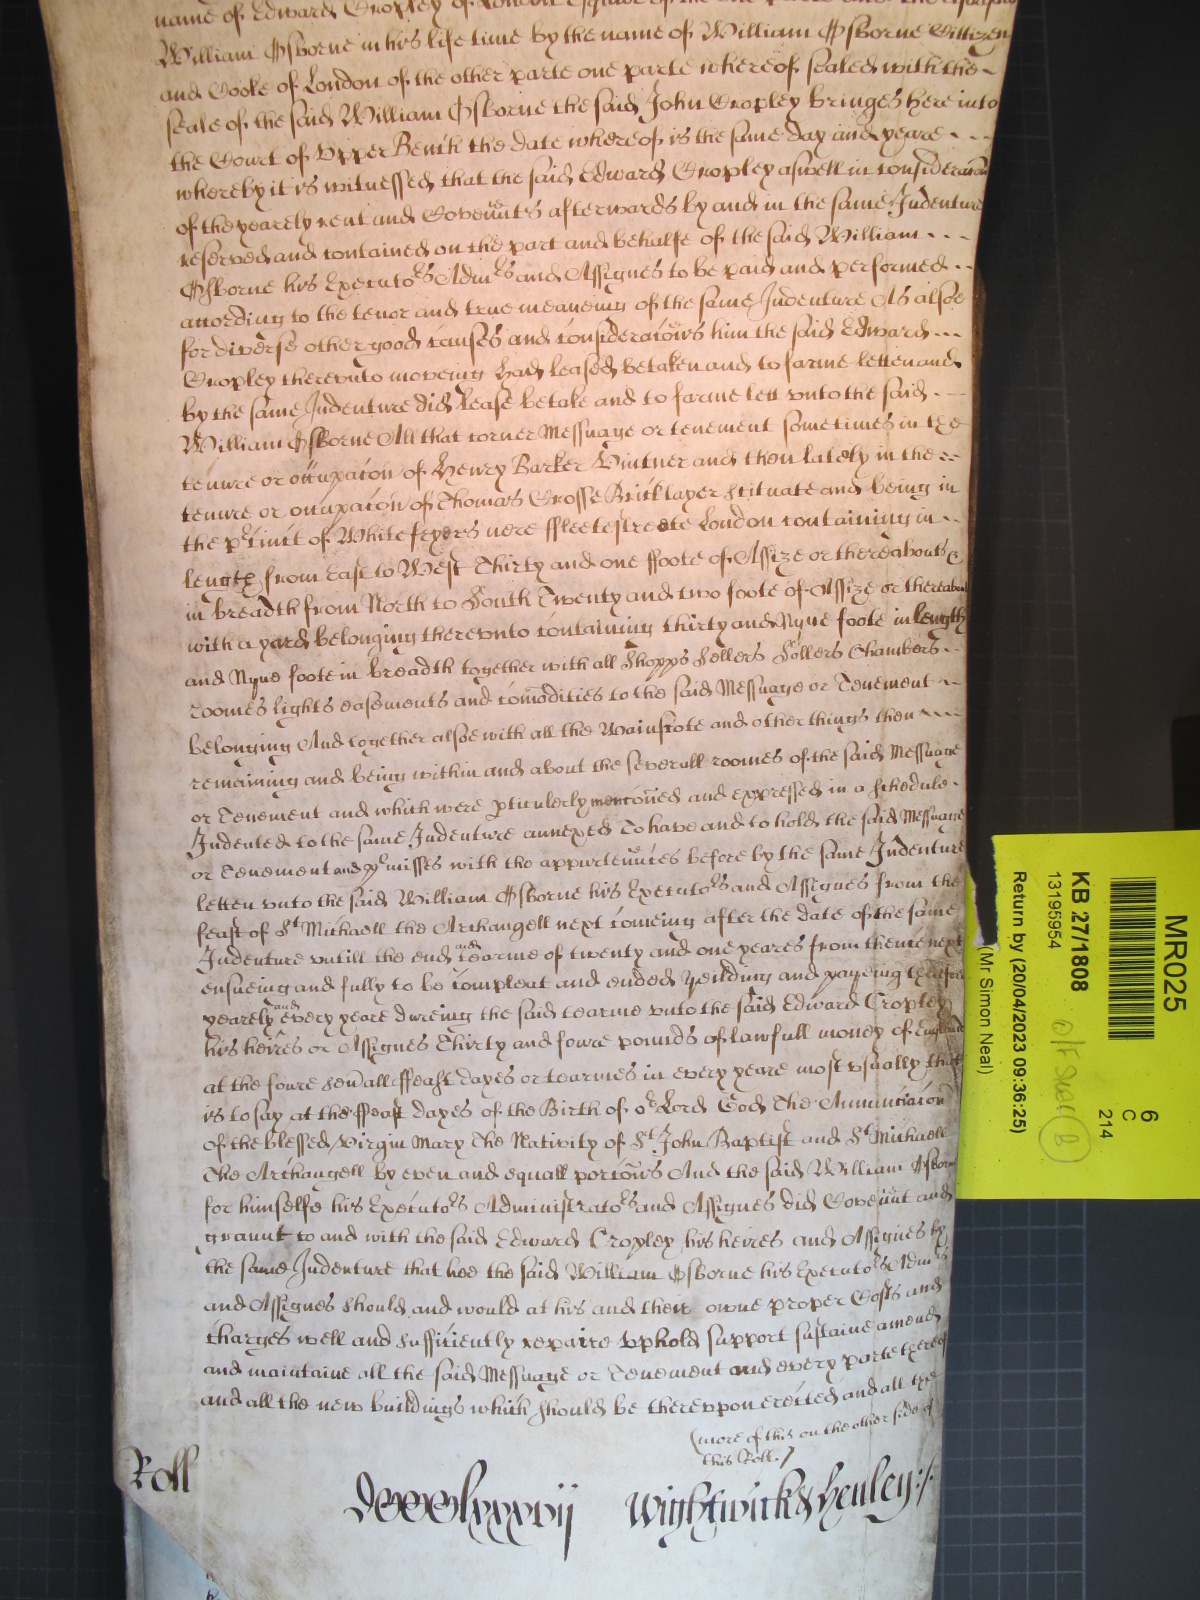 name of Edward Cropley of London Esquire of the one parte and the
William Osborne in his life time by the name of William Osborne Cittizen
and Cooke of London of the other parte one parte whereof sealed with the
seale of the said William Osborne the said John Cropley bringes here into
the Court of Upper Bench the date whereof is the same day and yeare
whereby it is witnessed that the said Edward Cropley aswell in consideracon
of the yearely rent and Coven̄nts afterwards by and in the same Indenture
reserved and contained on the part and behalfe of the said William
Osborne his Executors Admrs and Assignes to be paid and performed
according to the tenor and true meaneing of the same Indenture As alsoe
for diverse other good causes and consideracōns him the said Edward
Cropley therevnto moveing Had leased betaken and to farme letten and
by the same Indenture did lease betake and to farme lett vnto the said
William Osborne All that corner Messuage or tenement sometimes in the
tenure or occupacōn of Henry Barker Vintner and then lately in the
tenure or occupacōn of Thomas Crosse Bricklayer scituate and being in
the prcinct of Whitefryers nere ffleetestreete London containing in
length from East to West Thirty and one ffoote of Assize or thereabouts &
in breadth from North to South Twenty and two foote of Assize or thereabout
with a yard belonging therevnto containing thirty and Nyne foote in length
and Nyne foote in breadth together with all Shopps Sellers Sollers Chambers
roomes lights easements and com̄odities to the said Messuage or Tenement
belonging And together alsoe with all the Wainscote and other things then
remaining and being within and about the severall roomes of the said Messuage
or Tenement and which were pticulerly mencōned and expressed in a schedule
Indented to the same Indenture annexed To have and to hold the said Messuage
or Tenement and prmisses with the appurtenn̄ces before by the same Indenture
letten vnto the said William Osborne his Executors and Assignes from the
feast of St Michaell the Archangell next comeing after the date of the same
Indenture vntill the end and tearme of twenty and one yeares from thence next
ensueing and fully to be compleat and ended yeilding and payeing therefore
yearely and every yeare dureing the said tearme vnto the said Edward Cropley
his heires or Assignes Thirty and fowre pounds of lawfull money of England
at the fowre sev̄all ffeast dayes or tearmes in every yeare most vsually that
is to say at the ffeast dayes of the Birth of or Lord God The Annunciacōn
of the blessed Virgin Mary The Nativity of St John Baptist and St Michaell
The Archangell by even and equall porcōns And the said William Osborne
for himselfe his Executors Administrators and Assignes did Coven̄nt and
graunt to and with the said Edward Cropley his heires and Assignes by
the same Indenture that hee the said William Osborne his Executors Admrs
and Assignes should and would at his and their owne proper Costs and
charges well and sufficiently repaire vphold support sustaine amend
and maintaine all the said Messuage or Tenement and every parte thereof
and all the new buildings which should be therevpon erected and all the
(more of this on the other side of
this Roll.)
Roll
Wightwick & Henley:/.
MR025
6
C
214
KB 27/1808
13195954
Return by (20/04/2023 09:36:25)
(Mr Simon Neal)